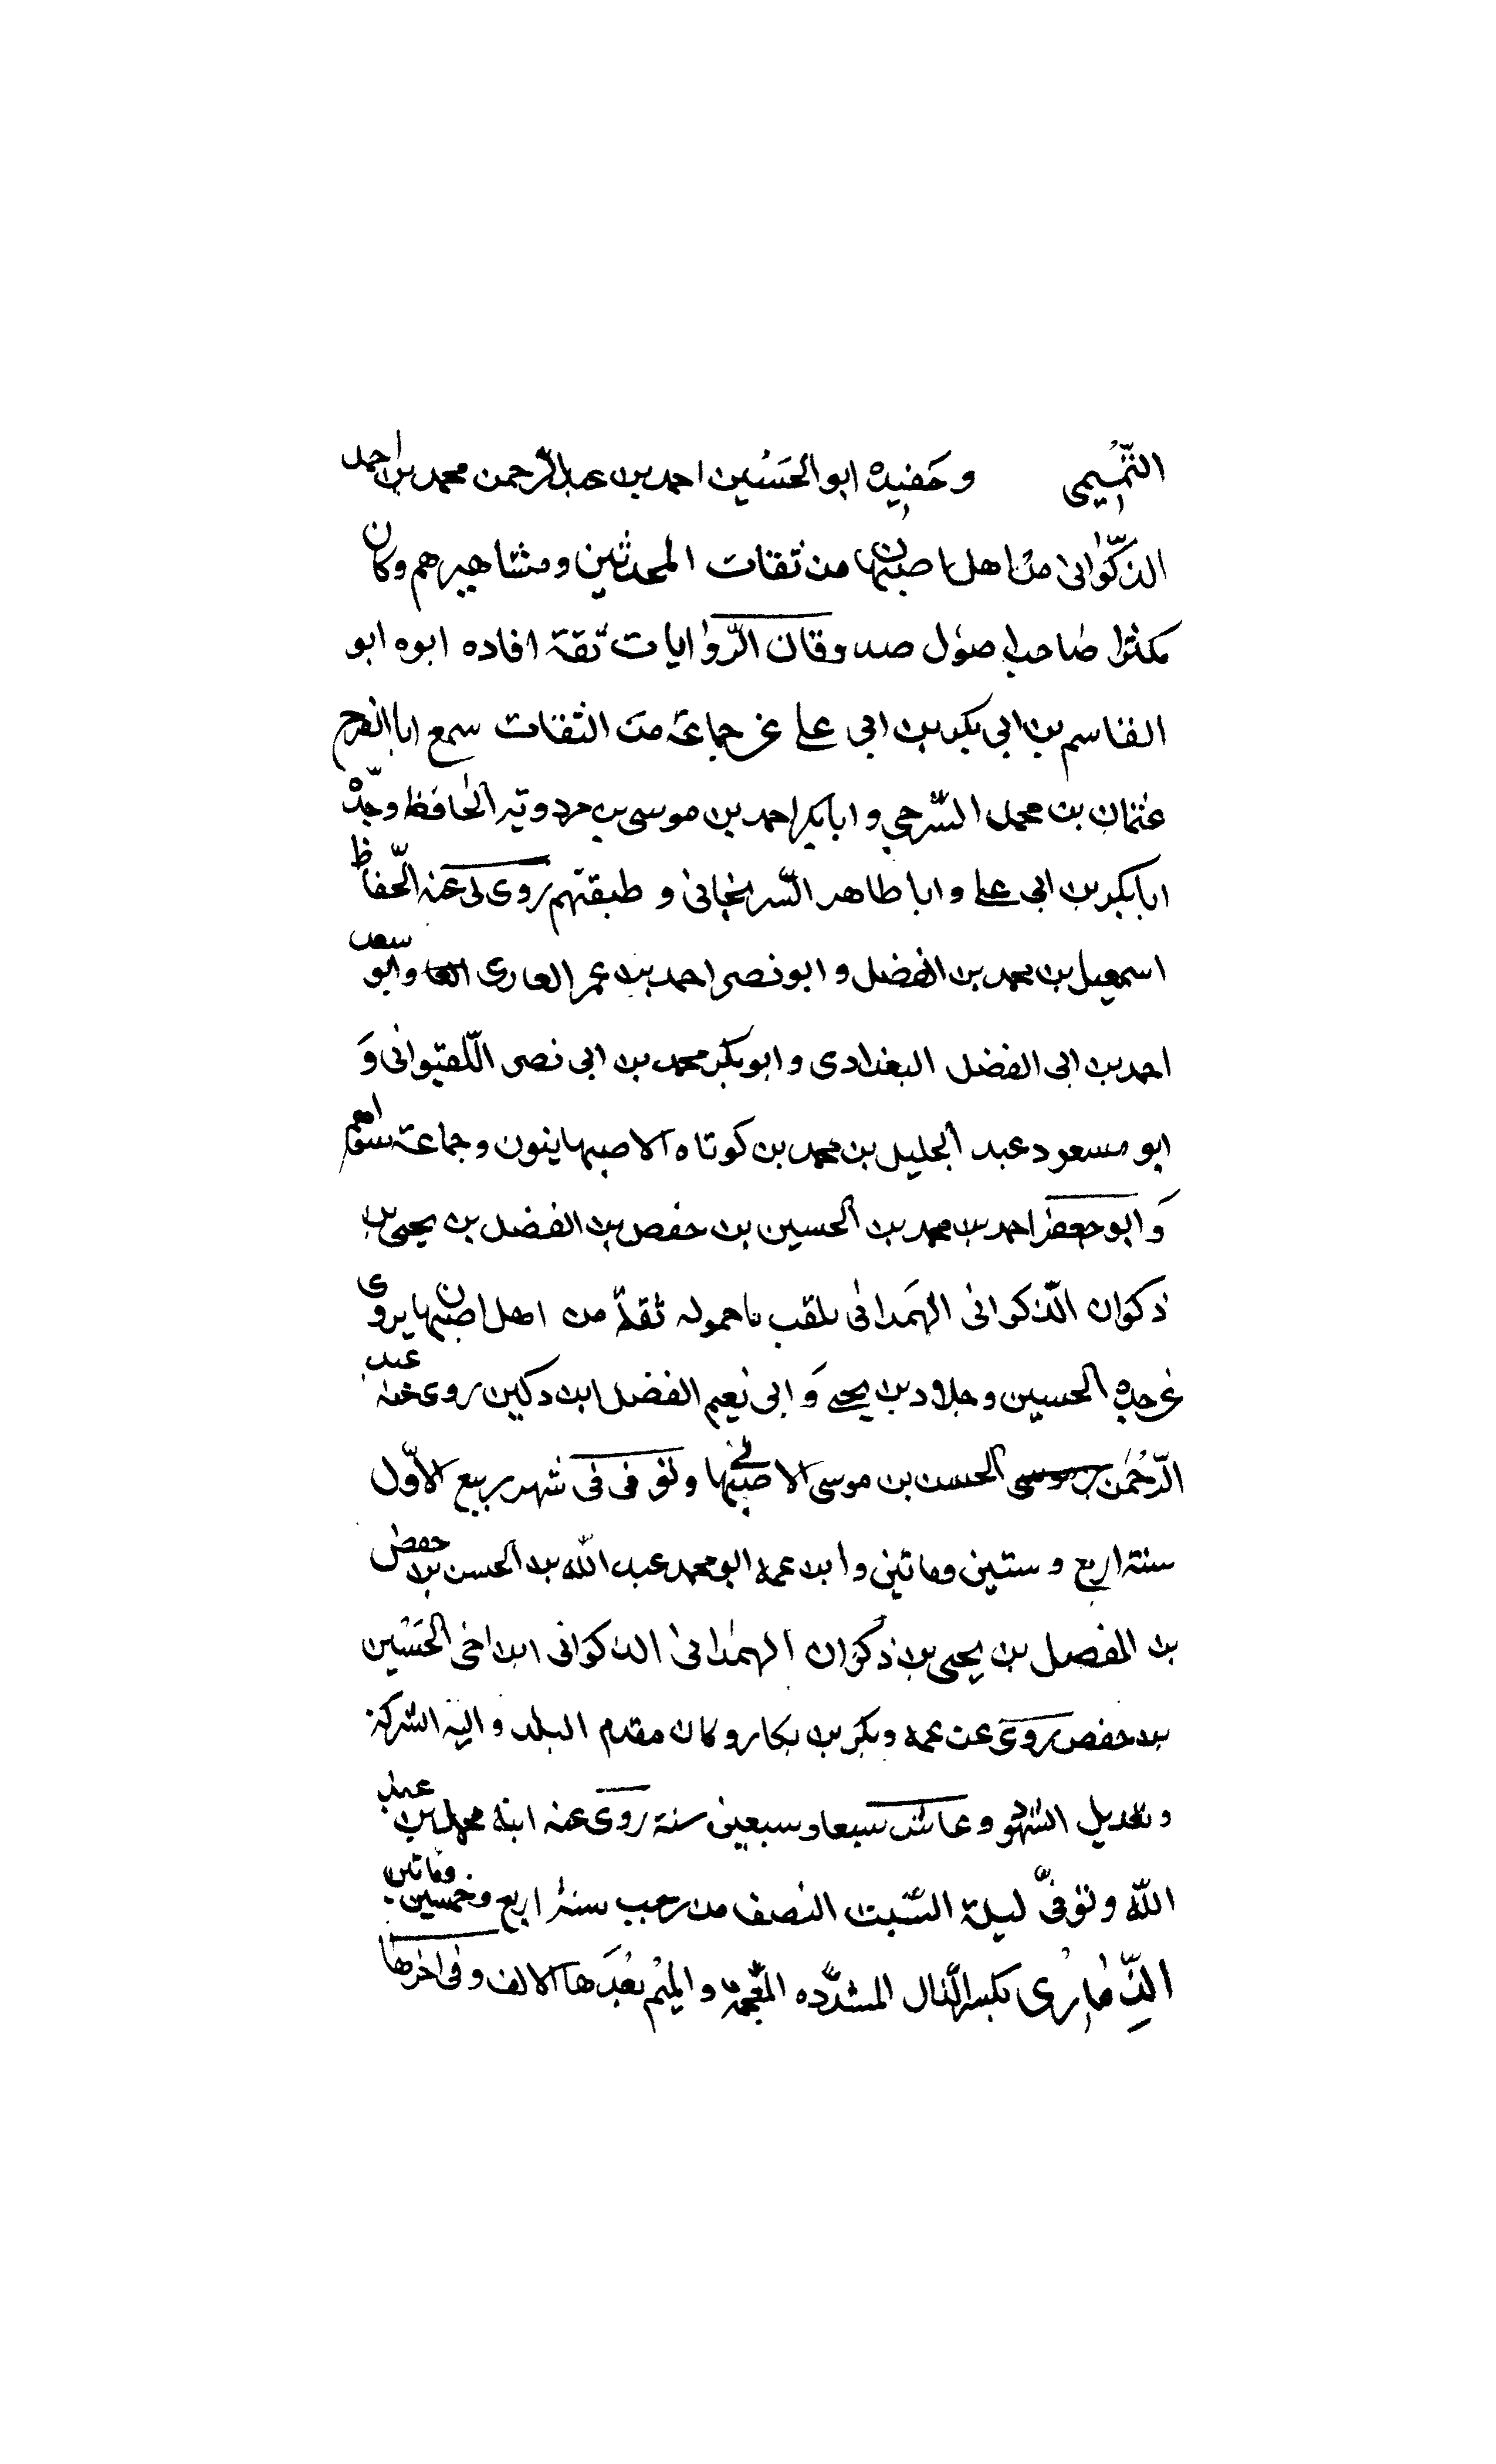 التميمي وحفيده ابو الحسين احمد بن عبد الرحمن محمد بن احمد
الذكواني من اهل اصبهان من ثقات المحدثين ومشاهيرهم وكان
مكثرا صاحب اصول صدوقان الروايات ثقة افاده ابوه ابو
القاسم بن ابي بكر بن ابي علي عن جماعة من الثقات سمع ابا الفرج
عثمان بن محمد السرجي وابا بكر احمد بن موسى بن مردويه الحافظ وجده
ابا بكر بن ابي علي وابا طاهر السرنجاني وطبقتهم روى لى عنه الحفاظ
اسمعيل بن محمد بن الفضل وابو نصر احمد بن عمر العارى وابو سعد
احمد بن ابي الفضل البغدادى وابو بكر محمد بن ابي نصر اللفتوانى و
ابو مسعود عبد الجليل بن محمد بن كوتاه الاصبهانيون وجماعة سواهم
وابو جعفر احمد بن محمد بن الحسين بن حفص بن الفضل بن يحيى بن
ذكوان الذكوانى الهمدانى يلقب باحموله ثقة من اهل اصبهان يروى
عن جده الحسين وخلاد بن يحيى وابى نعيم الفضل ابن دكين روى عنه عبد
الرحمن بن الحسن بن موسى الاصبهانى وتوفى فى شهر ربيع الاول
سنة اربع وستين وماتين وابن عمه ابو محمد عبد الله بن الحسن بن حفص
بن المفصل بن يحيى بن ذكوان الهمدانى الذكوانى ابن اخى الحسين
بن حفص يروى عن عمه وبكر بن بكار وكان مقدم البلد واليه التزكية
وتعديل الشهود وعاش سبعا وسبعين سنة روى عنه ابنه محمد بن عبد
الله وتوفى ليلة السبت النصف من رجب سنة اربع وخمسين وماتين
الذمارى بكسر الذال المشدده المعجمة والميم بعدها الالف وفى اخرها